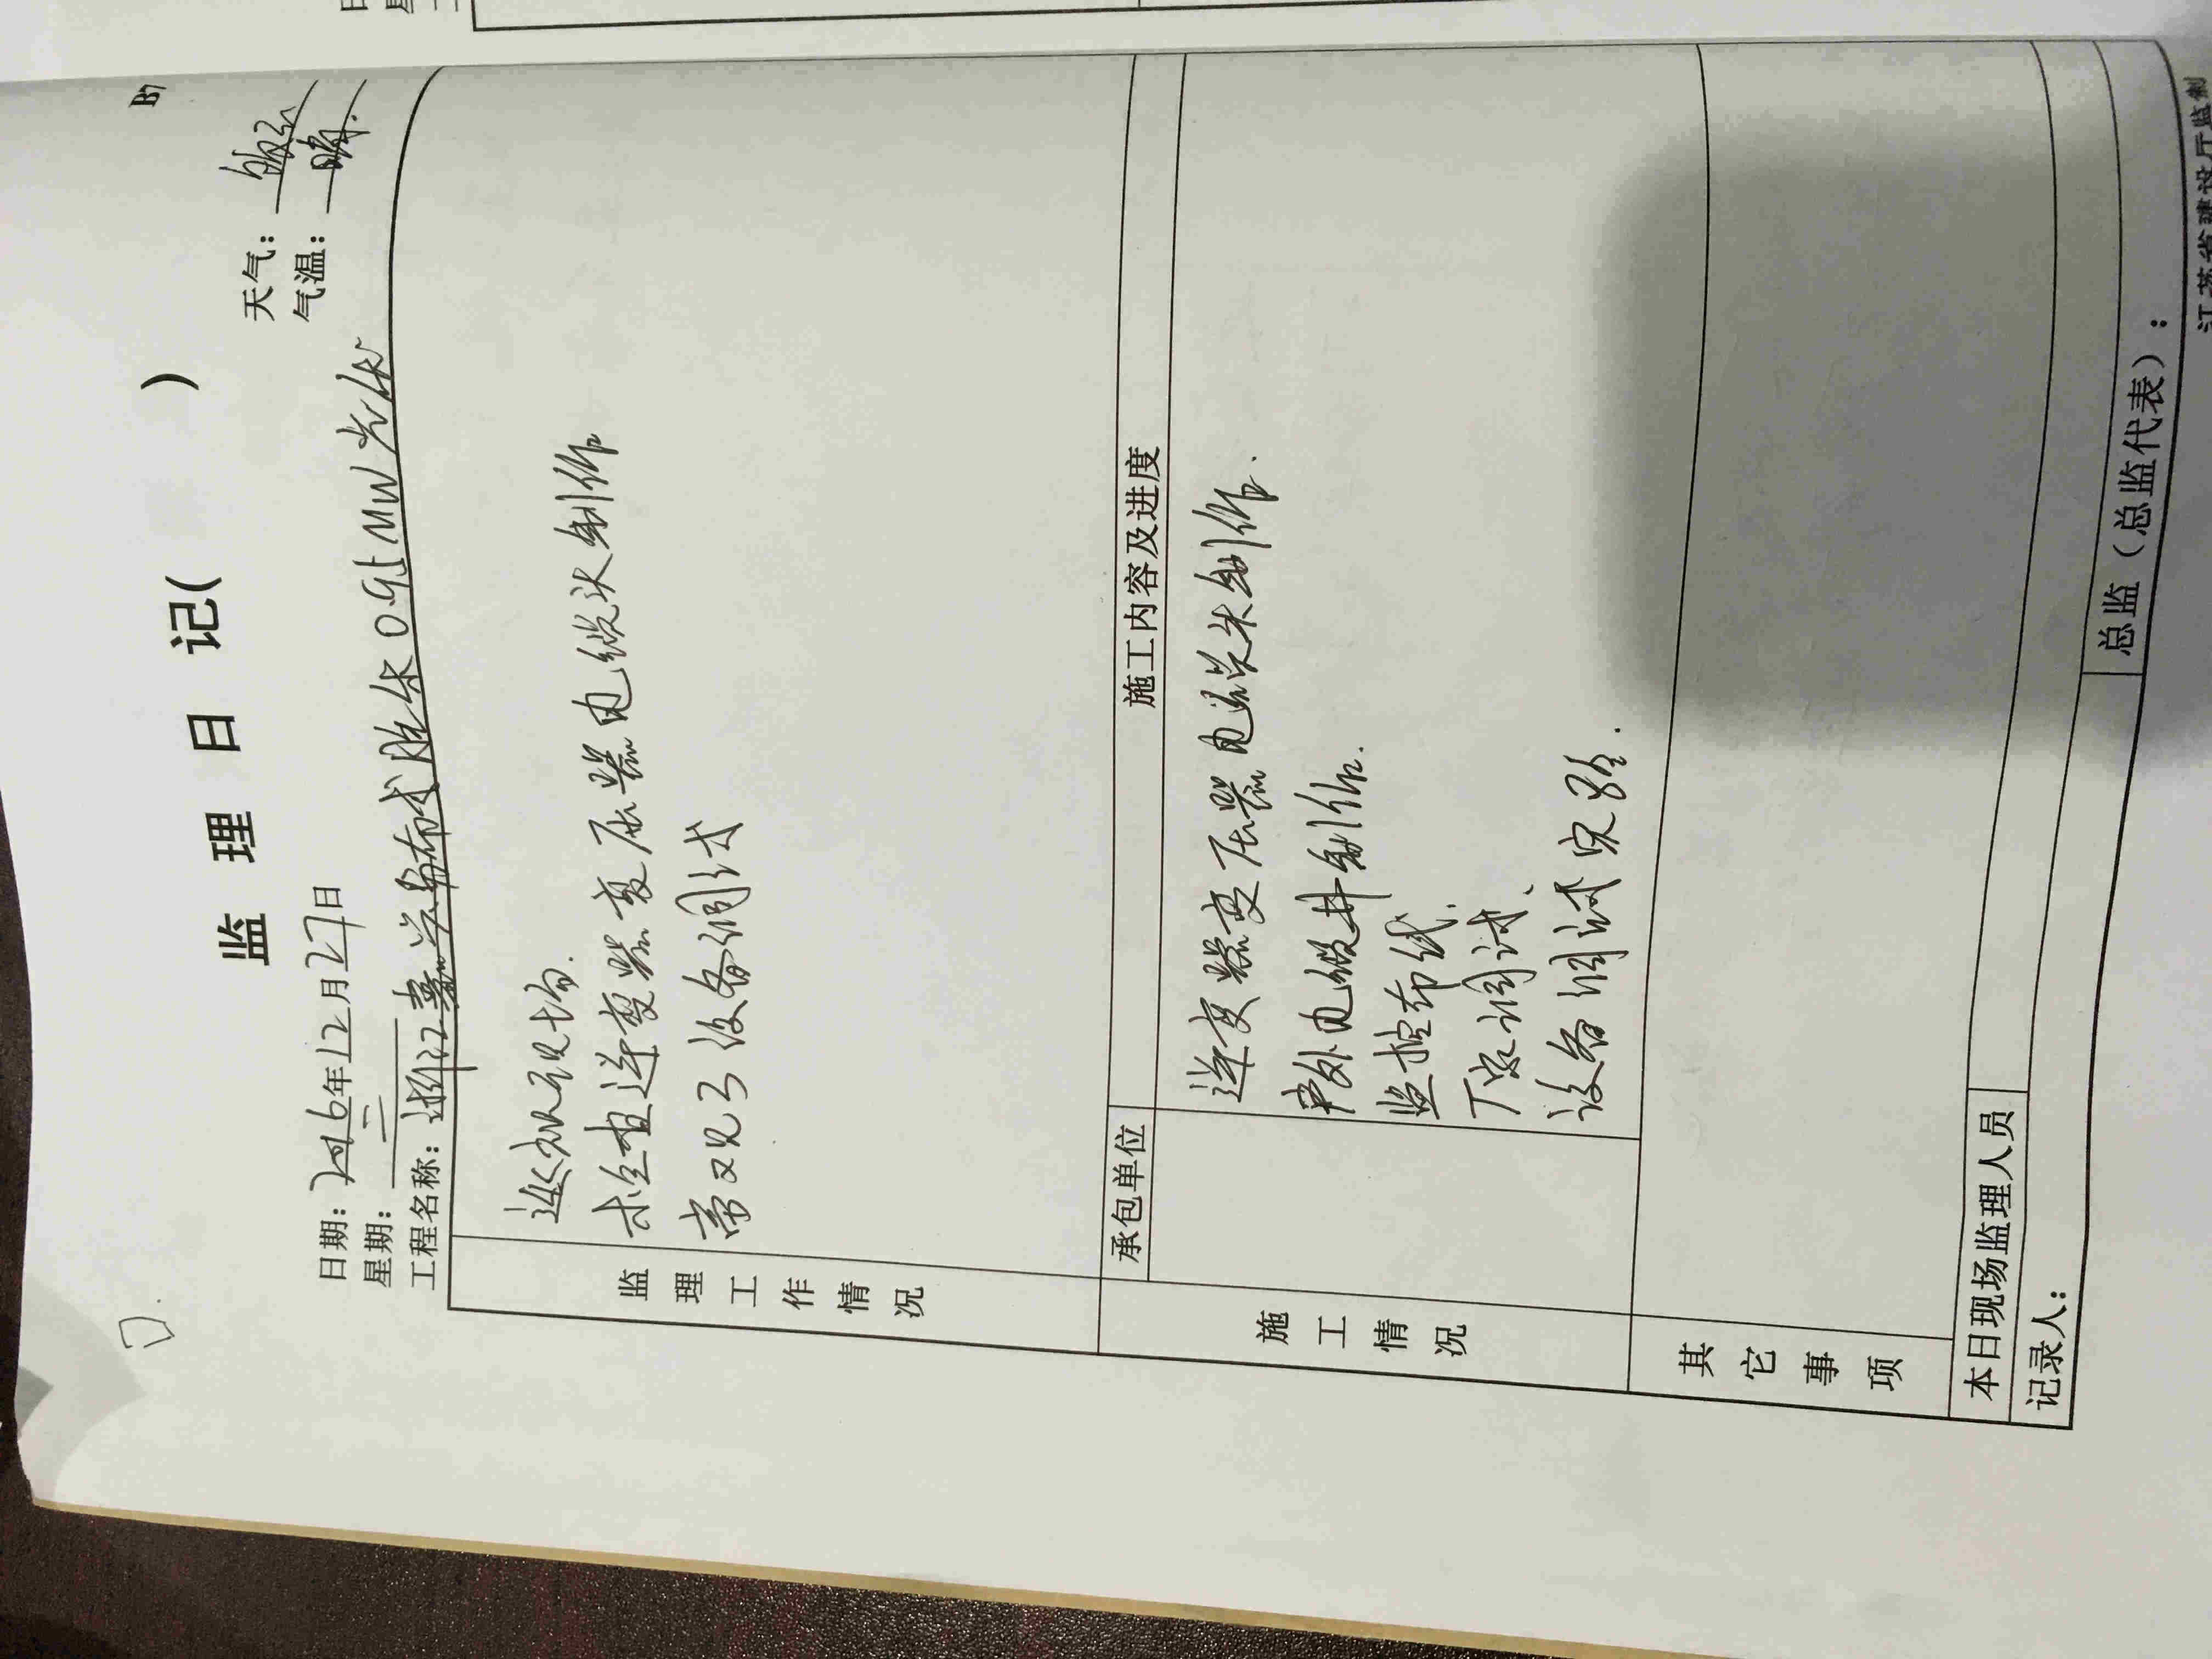 B7
监 理 日 记( )
日期: 2016年12月27日
天气:
星期: 二
气温: 晴.
工程名称: 浙江嘉兴分布式胜华0.95MW光伏
监理工作情况
巡视现场.
检查逆变器变压器电缆头制作
常规设备调试
承包单位
施工内容及进度
施工情况
逆变器变压器电缆头制作.
户外电缆井制作.
监控布线.
厂家调试、
设备调试实验.
其它事项
本日现场监理人员
记录人:
总监(总监代表):
江苏省建设厅监制